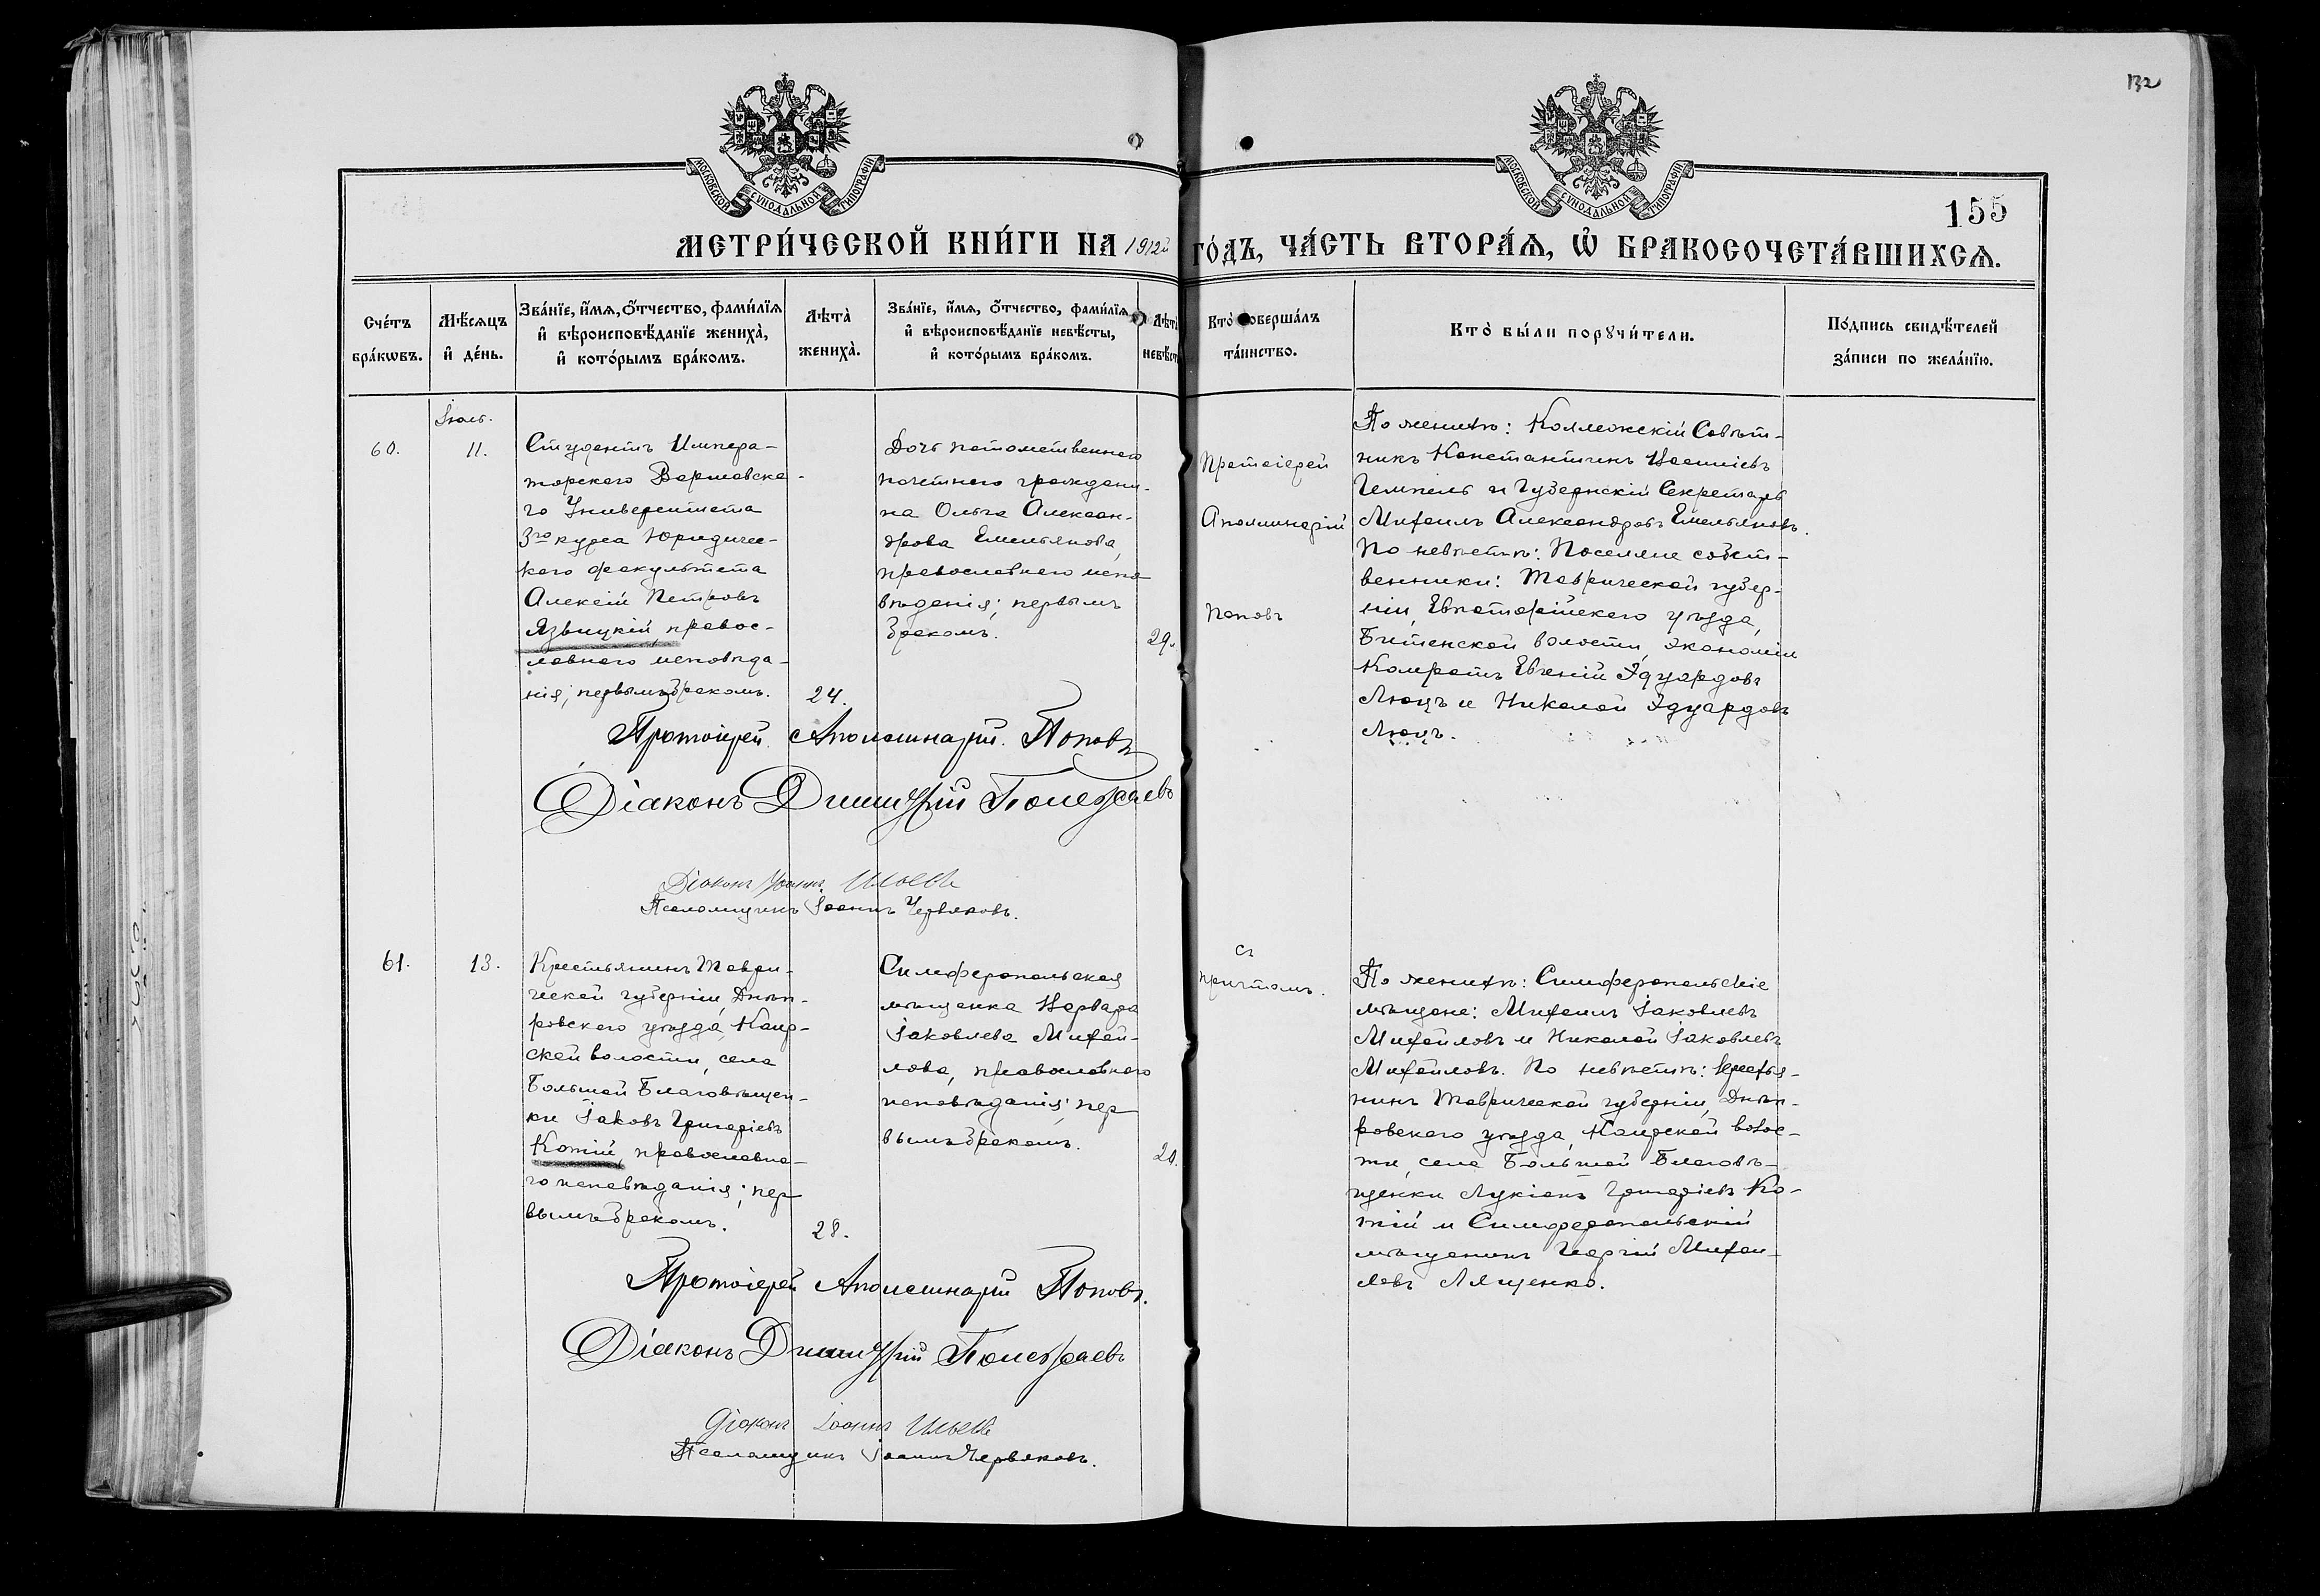 132
МОСКОВСКОЙ СѴНОДАЛЬНОЙ ТИПОГРАФІИ
МОСКОВСКОЙ СѴНОДАЛЬНОЙ ТИПОГРАФІИ
155
МЕТРИ́ЧЕСКОЙ КНИ́ГИ НА 1912й ГО́ДЪ, ЧА́СТЬ ВТОРА́Ѧ, Ѡ҆ БРАКОСОЧЕТА́ВШИХСѦ.
Сче́тъ
бра́кѡвъ.
Мѣ́сяцъ
и҆ де́нь.
Зва́нїе, и҆́мя, ѻ҆́тчество, фами́лїя
и҆ вѣроисповѣ́данїе жениха̀,
и҆ кото́рымъ бра́комъ.
Лѣта̀
жениха̀.
Зва́нїе, и҆́мя, ѻ҆́тчество, фами́лїя
и҆ вѣроисповѣ́данїе невѣ́сты,
и҆ кото́рымъ бра́комъ.
Лѣта̀
невѣ́ст
Кто̀ соверша́лъ
та́инство.
Кто̀ бы́ли порꙋчи́тели.
По́дпись свидѣ́телей
за́писи по жела́нїю.
Іюль.
60.
11.
Студентъ Импера-
торскаго Варшавска-
го Университета
3го курса Юридичес-
каго факультета
Алексій Петровъ
Язвицкій, правос-
лавнаго исповѣда-
нія; первымъ бракомъ.
24.
Дочь потомственнаго
почетнаго граждани-
на Ольга Алексан-
дрова Емельянова,
православнаго испо-
вѣданія; первымъ
бракомъ.
29.
Протоіерей
Аполлинарій
Поповъ
По женихѣ: Коллежскій Совѣт-
никъ Константинъ
и Губернскій Секретарь
Михаилъ Александровъ Емельяновъ.
По невѣстѣ: Поселяне собст-
венники: Таврической губер-
ніи, Евпаторійскаго уѣзда,
волости, экономіи
Комратъ Евгеній Эдуардовъ
Люцъ и Николай Эдуардовъ
Люцъ.
Протоіерей Аполлинарій Поповъ
Діаконъ Димитрій
Діаконъ Іоаннъ Ильевъ
Псаломщикъ Іоаннъ Червяковъ.
61.
13.
Крестьянинъ Таври-
ческой губерніи, Днѣп-
ровскаго уѣзда, Каир-
ской волости, села
Большой Благовѣщен-
ки Іаковъ Григоріевъ
Котій, православна-
го исповѣданія; пер
вымъ бракомъ.
28.
Симферопольская
мѣщанка Варвара
Іаковлева Михай-
лова, православнаго
исповѣданія; пер
вымъ бракомъ.
20.
съ
причтомъ.
По женихѣ: Симферопольскіе
мѣщане: Михаилъ Іаковлевъ
Михайловъ и Николай Іаковлевъ
Михайловъ. По невѣстѣ: Крестья-
нинъ Таврической губерніи, Днѣп-
ровскаго уѣзда, Каирской волос-
ти, села Большой Благовѣ-
щенки Лукіанъ Григоріевъ Ко-
тій и Симферопольскій
мѣщанинъ Георгій Михаи-
ловъ Лященко.
Протоіерей Аполлинарій Поповъ.
Діаконъ Димитрій
Діаконъ Іоаннъ Ильевъ
Псаломщикъ Іоаннъ Червяковъ.